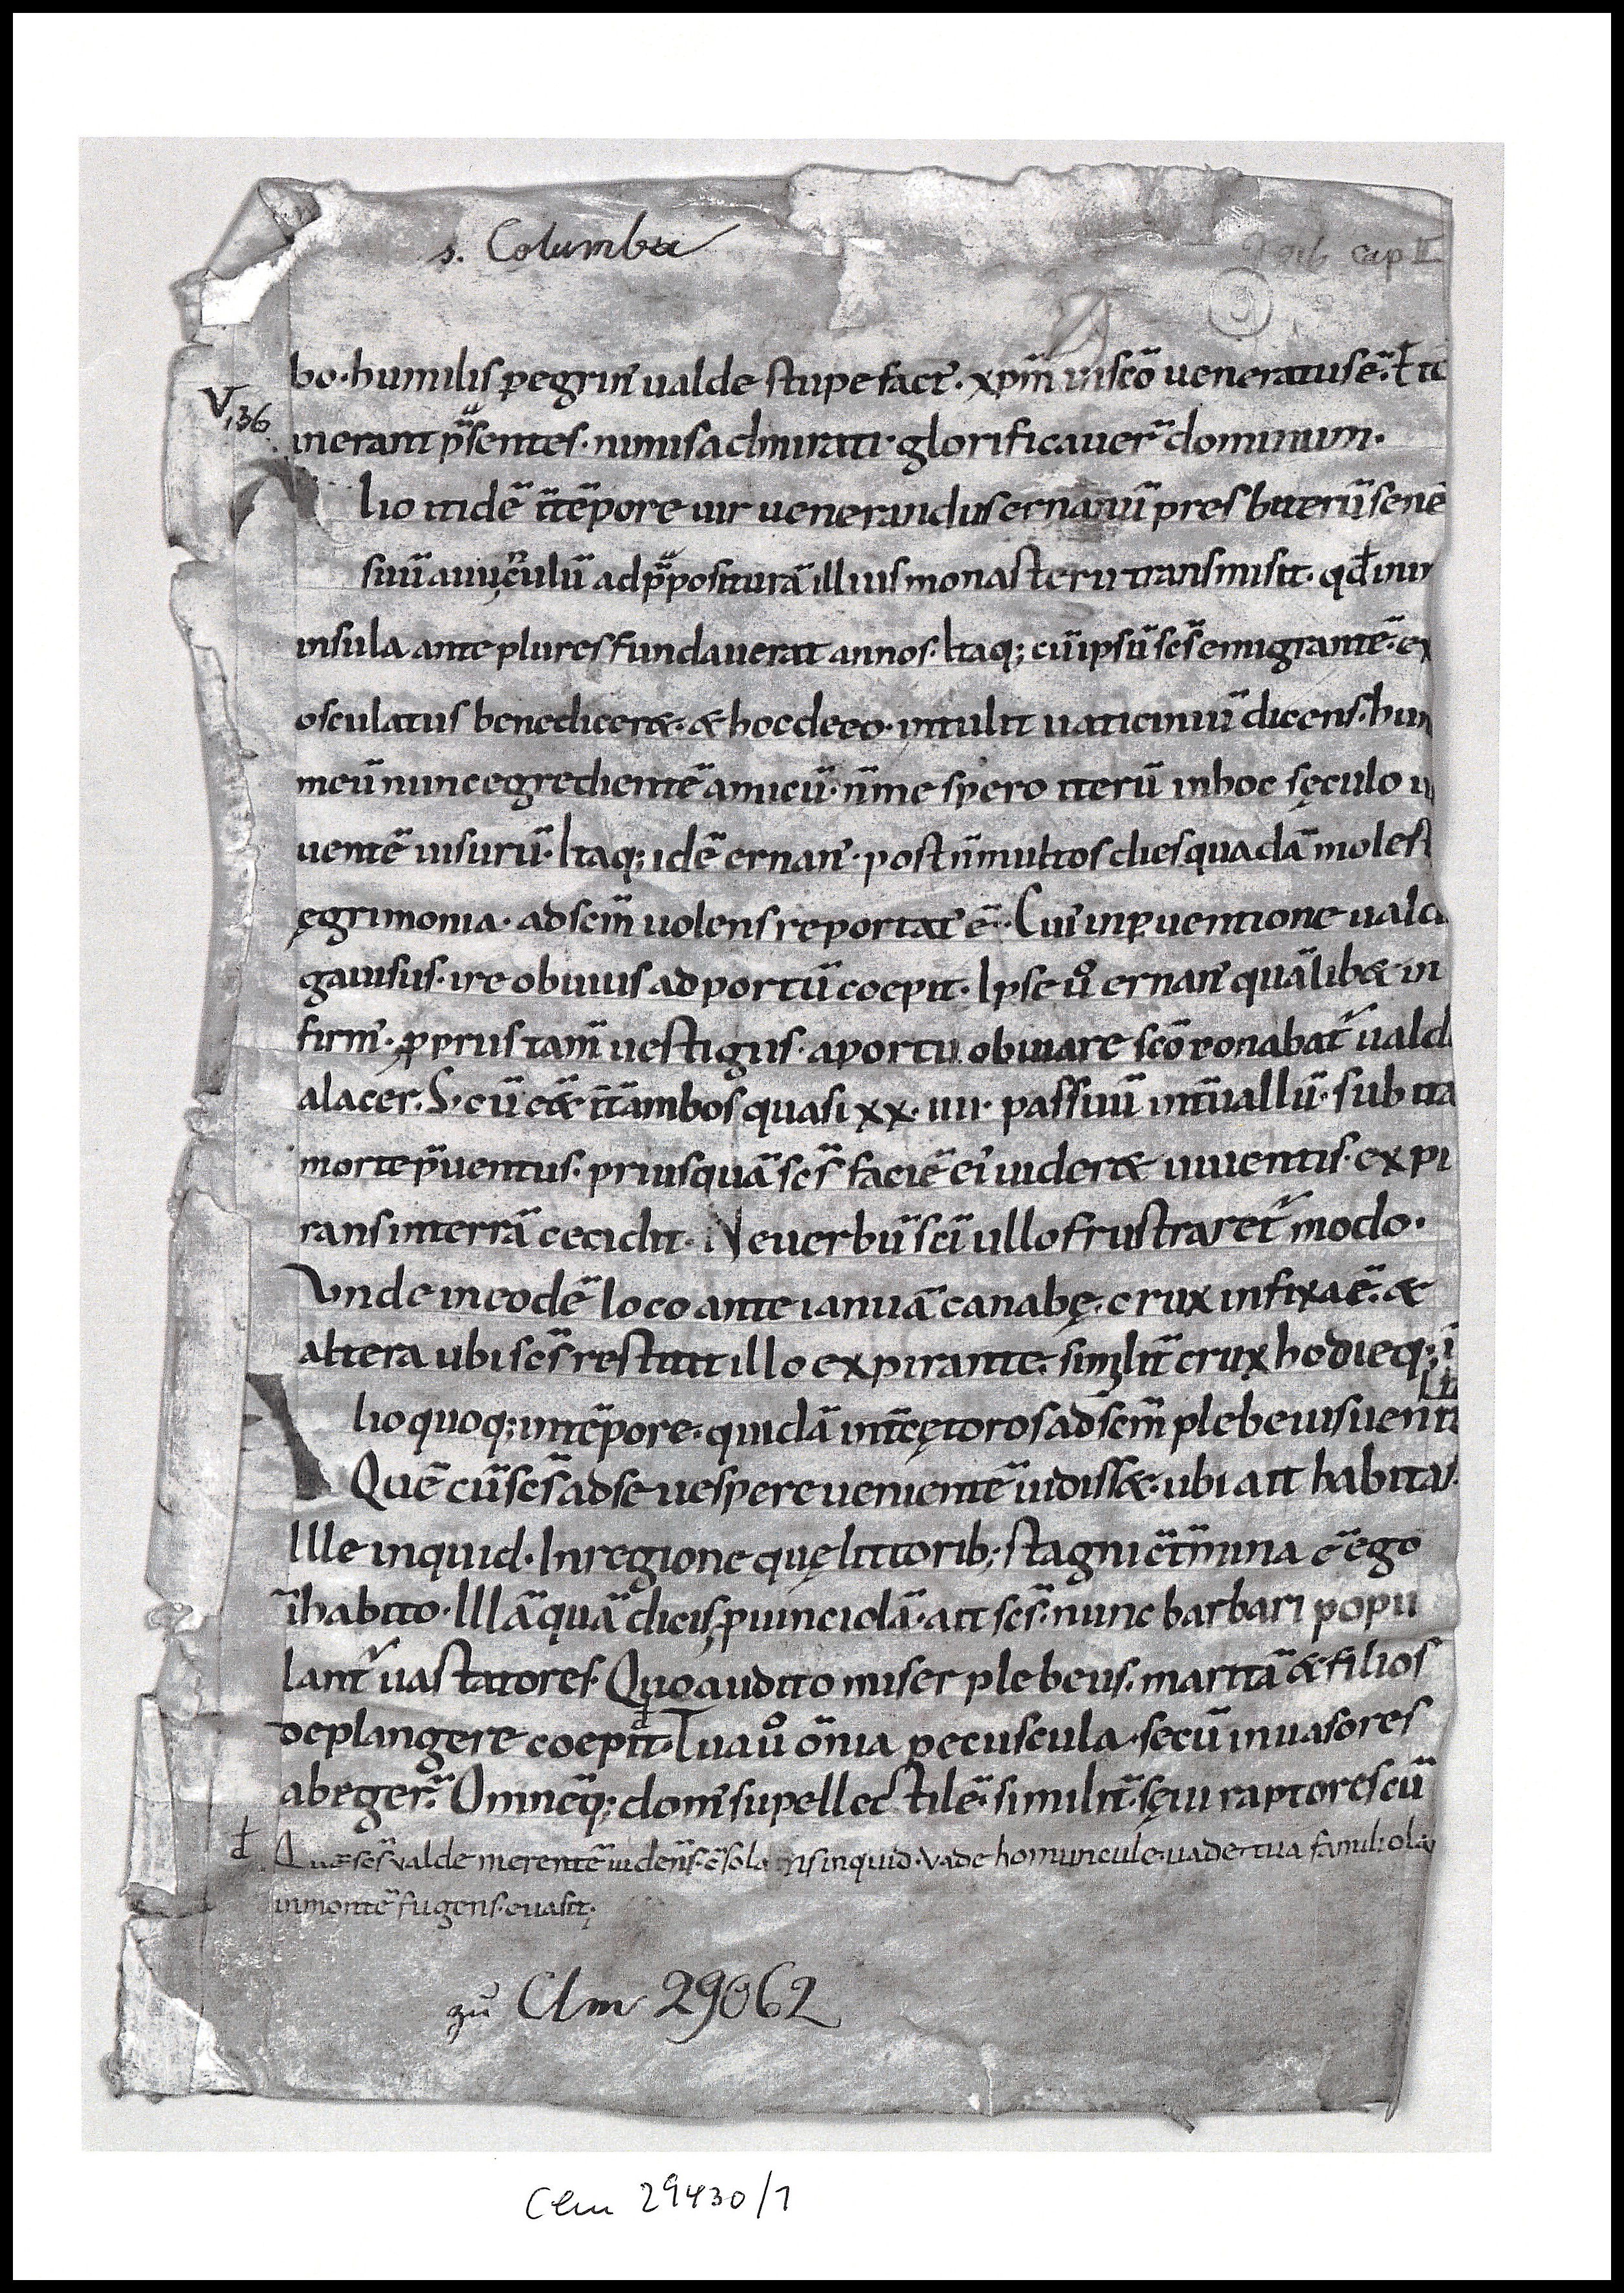 s. Columba
cap II
9
bo· humilis ꝑegrin᾽ ualde stupefact᾽· xp̄m in sc̄o ueneratus ē· Et
V,136
inerant p̄sentes· nimis admirati· glorificauer̄ dominum·
lio itidē ī tēpore uir uenerandus ernanū presbiterū senē
suū auunculū ad p̄positurā illius monasterii transmisit· qđ in
insula ante plures fundauerat annos· Itaq; cū ipsū sc̄s emigrantē· ex
osculatus benedicer&· & hoc de eo· intulit uaticiniū dicens· hun
meū nunc egredientē amicū· n̄ me spero iterū in hoc sęculo ui
uentē uisurū· Itaq; idē ernan᾽· post n̄ multos dies quadā molest
ęgrimonia· ad sc̄m uolens reportat᾽ ē· Cui᾽ in ꝑuentione uald
gauisus· ire obuius ad portū coepit· Ipse ů ernan᾽ quālib& in
firm᾽· ꝓpriis tam̄ uestigiis· a portu obuiare sc̄o conabat᾽ uald
alacer· S· cū ēē& īt ambos quasi xx· iiii· passuū int̄uallū· subita
morte p̄uentus· priusquā sc̄s faciē ei᾽ uider& uiuentis· expi
rans in terrā cecidit· Ne uerbū sc̄i ullo frustraret᾽ modo·
Vnde in eodē loco ante ianuā canabę· crux infixa ē· &
altera ubi sc̄s restitit illo expirante· similit̄ crux hodieq; ī
lio quoq; in tēpore· quidā int̄ cętoros ad sc̄m plebeius uenit
Quē cū sc̄s ad se uespere uenientē uidiss&· ubi ait habitas·
Ille inquid· In regione quę littorib; stagni c̄t̄mina ē ego
īhabito· Illā quā dicis ꝓuinciolā· ait sc̄s· nunc barbari popu
lant᾽ uastatores· Quo audito miser plebeus· maritā & filios
deplangere coepit· đ Tua ů om̄ia pecuscula· secū inuasores
abeger̄· Omnēq; dom᾽ supellectilē· similit̄· sęui raptores cū
đ Quē sc̄s valde merentē uidens· c̄solans inquid· vade homuncule· uade· tua familiola
in montē fugiens· euasit·
zu Clm 29062
Clm 29430/1